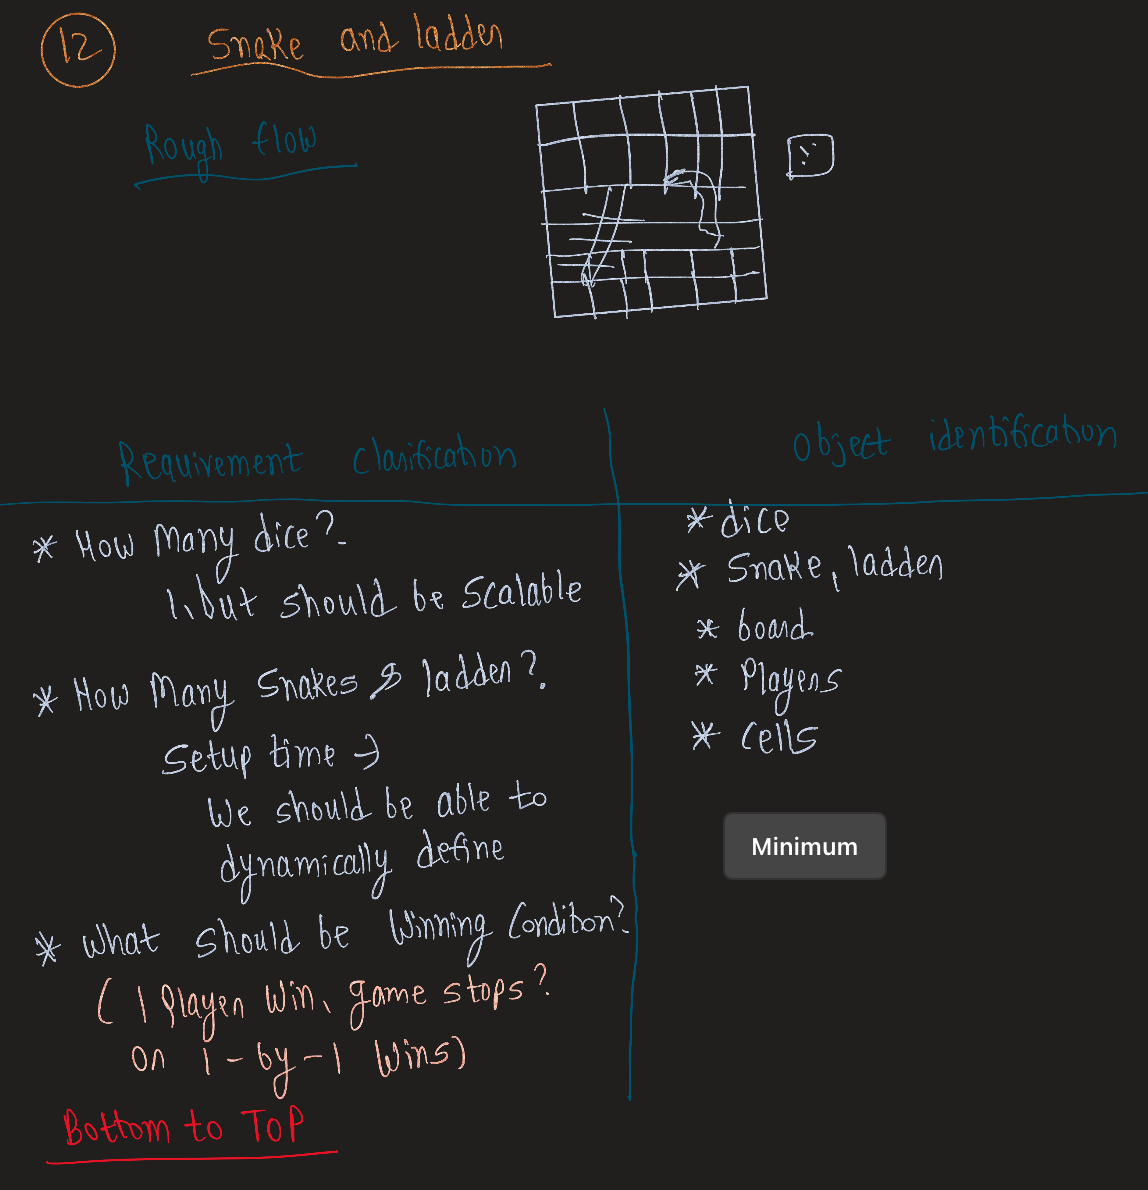 12
Snake and ladder
Rough flow
Requirement clarification
* How Many dice?
1, but should be Scalable
* How Many Snakes & ladder?
Setup time →
We should be able to
dynamically define
* What should be Winning Condition?
( 1 Player Win, game stops?
or 1-by-1 Wins)
Bottom to Top
Object identification
* dice
* Snake, ladder
* board
* Players
* Cells
Minimum